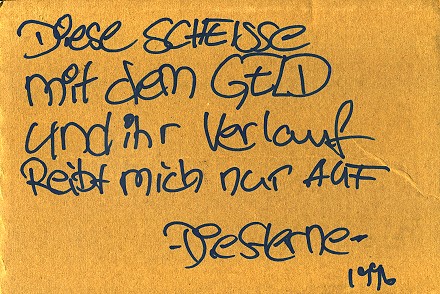 Diese SCHEISSE
mit dem GELD
und ihr Verlauf
Reibt mich nur AUF
- Die Sterne -
1996